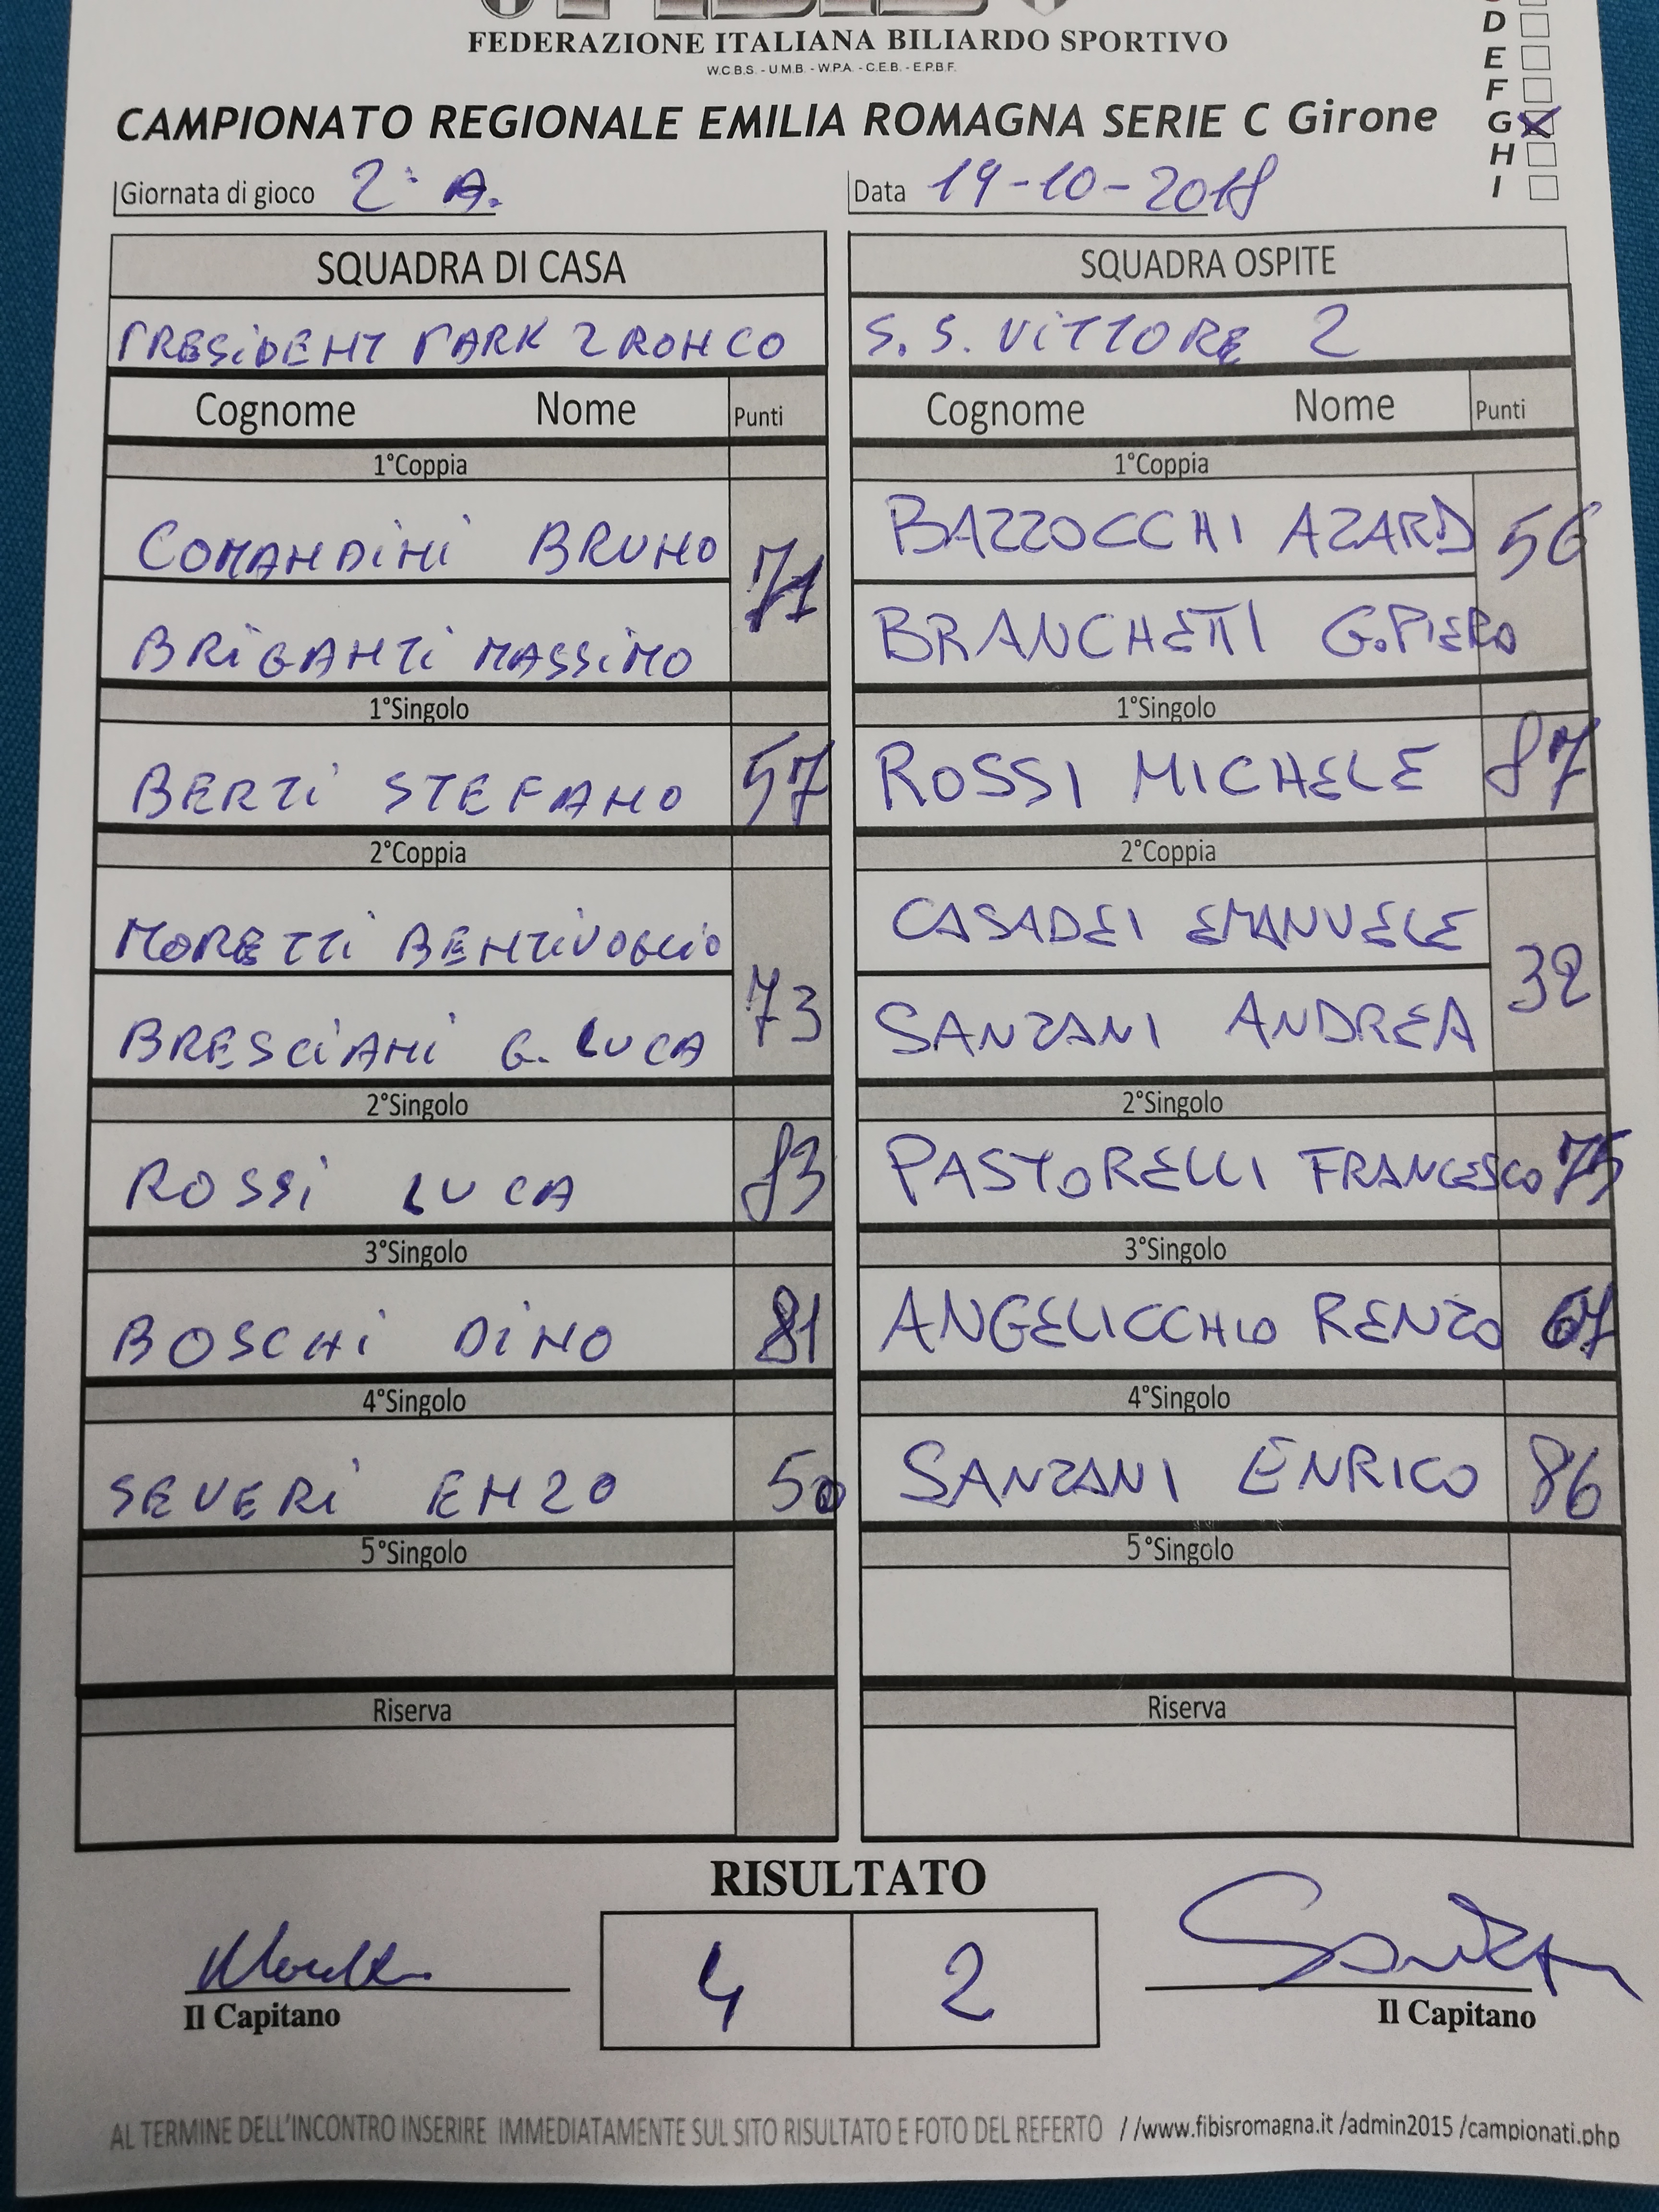 FEDERAZIONE ITALIANA BILIARDO SPORTIVO
W.C.B.S. - U.M.B. - W.P.A. - C.E.B. - E.P.B.F.
D
E
F
CAMPIONATO REGIONALE EMILIA ROMAGNA SERIE C Girone G
H
I
Giornata di gioco 2° A. Data 19-10-2018
SQUADRA DI CASA SQUADRA OSPITE
PRESiDENT PARK 2 RONCO S. S. ViTTORE 2
Cognome Nome Punti Cognome Nome Punti
1°Coppia 1°Coppia
COMANDiNi BRUNO 71 BAZZOCCHI AZARD 56
BRiGANTi MASSiMO BRANCHETTI G.PIERO
1°Singolo 1°Singolo
BERTi STEFANO 57 ROSSI MICHELE 87
2°Coppia 2°Coppia
MORETTi BENTiVOGLiO 73 CASADEI EMANUELE 32
BRESCiANi G. LUCA SANZANI ANDREA
2°Singolo 2°Singolo
ROSSi LUCA 83 PASTORELLI FRANCESCO 75
3°Singolo 3°Singolo
BOSCHi DiNO 81 ANGELICCHIO RENZO 67
4°Singolo 4°Singolo
SEVERi ENZO 50 SANZANI ENRICO 86
5°Singolo 5°Singolo
Riserva Riserva
RISULTATO
4 2
Il Capitano Il Capitano
AL TERMINE DELL'INCONTRO INSERIRE IMMEDIATAMENTE SUL SITO RISULTATO E FOTO DEL REFERTO //www.fibisromagna.it /admin2015 /campionati.php